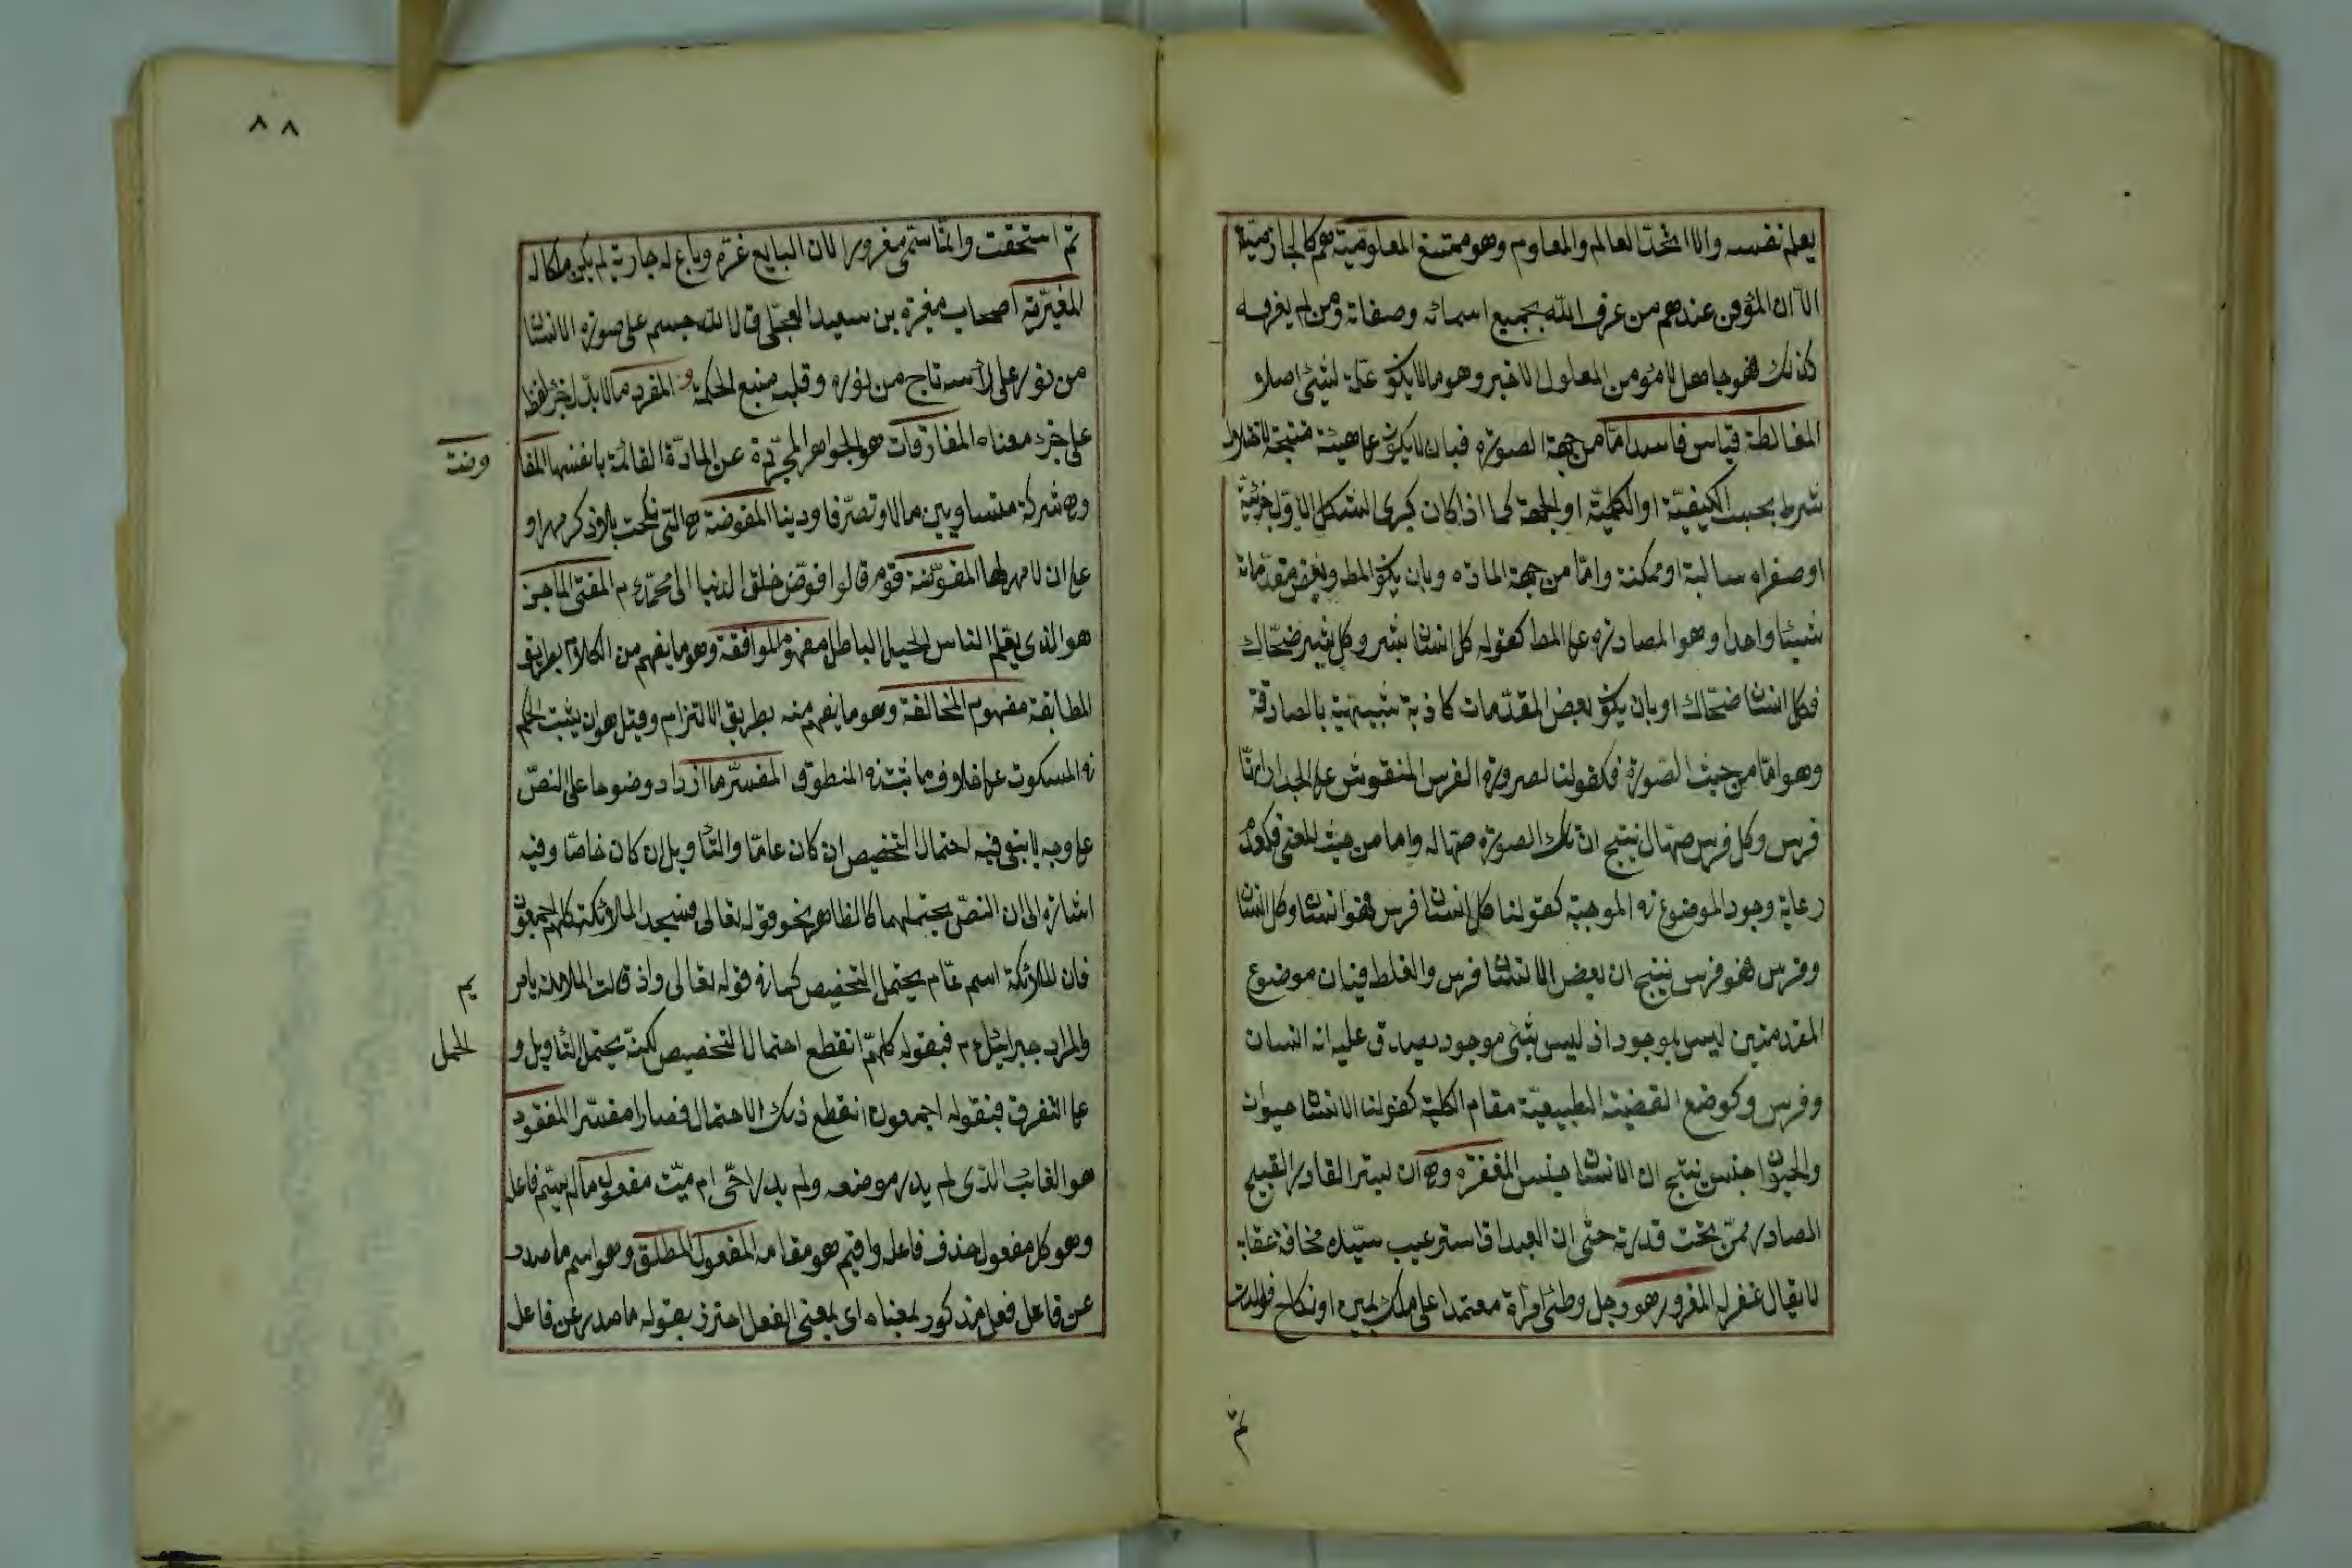 يعلم نفسه والا اتحد العالم والمعلوم وهو ممتنع المعلومية هم كالجازمية
الا ان المؤمن عندهم من عرف الله بجميع اسمائه وصفاته ومن لم يعرفه
كذلك فهو جاهل لا مؤمن المعلول الاخير وهو ما لا يكون علة لشئ اصلا
المغالطة قياس فاسد اما من جهة الصورة فبان لا يكون على هيئة منتجة لاختلال
شرط بحسب الكيفية او الكمية او الجهة كما اذا كان كبرى الشكل الاول جزئية
او صغراه سالبة او ممكنة واما من جهة المادة وبان يكون المط وبعض مقدماته
شيئا واحدا وهو المصادرة على المط كقوله كل انسان بشر وكل بشر ضحاك
فكل انسان ضحاك او بان يكون بعض المقدمات كاذبة شبيهية بالصادقة
وهو اما من حيث الصورة فكقولنا لصورة الفرس المنقوش على الجدار انها
فرس وكل فرس صهال ينتج ان تلك الصورة صهالة واما من حيث المعنى فكعدم
رعاية وجود الموضوع في الموجبة كقولنا كل انسان فرس فهو انسان وكل انسان
وفرس فهو فرس ينتج ان بعض الانسان فرس والغلط فيه ان موضوع
المقدمتين ليس بموجود اذ ليس شئ موجود يصدق عليه انه انسان
وفرس وكوضع القضية الطبيعية مقام الكلية كقولنا الانسان حيوان
والحيوان جنس ينتج ان الانسان جنس المغفرة وهى ان يستر القادر القبيح
الصادر ممن تحت قدرته حتى ان العبد ان ستر عيب سيده مخافة عقابه
لا يقال غفر له المغرور هو رجل وطئ امرأة معتمدا على ملك يمين او نكاح فولدت
ثم
٨٨
ثم استحقت وانما سمى مغرورا لان البايع غره وباع له جارية لم يكن ملكا له
المغيرية اصحاب مغيرة بن سعيد العجلى قال الله جسم على صورة الانسان
من نور على رأسه تاج من نوره وقلبه منبع الحكمة و المفرد ما لا يدل جزء لفظه
على جزء معناه المفارقات هو الجواهر المجردة عن المادة القائمة بانفسها المفا
وضة
وهى شركة متساويين مالا وتصرفا ودينا المفوضة هى التى نكحت بلا ذكر مهر او
على ان لا مهر لها المفوضة قوم قالوا فوض خلق الدنيا الى محمد عم المفتى الماجن
هو الذى يعلم الناس الحيل الباطل مفهوم الموافقة وهو ما يفهم من الكلام بطريق
المطابقة مفهوم المخالفة وهو ما يفهم منه بطريق الالتزام وقيل هو ان يثبت الحكم
في المسكوت على خلاف ما ثبت في المنطوق المفسر ما ازداد وضوحا على النص
على وجه لا يبقى فيه احتمال التخصيص ان كان عاما والتأويل ان كان خاصا وفيه
اشارة الى ان النص يحتملهما كالظاهر نحو قوله تعالى فسجد الملائكة كلهم اجمعون
فان الملائكة اسم عام يحتمل التخصيص كما في قوله تعالى واذ قالت الملائكة يامر
يم
والمراد جبرائيل عم فبقوله كلهم انقطع احتمال التخصيص لكنه يحتمل التأويل و
الحمل
على التفرق فبقوله اجمعون انقطع ذلك الاحتمال فصار مفسرا المفقود
هو الغائب الذى لم يدر موضعه ولم يدر احى ام ميت مفعول ما لم يسم فاعله
وهو كل مفعول حذف فاعله واقيم هو مقامه المفعول المطلق وهو اسم ما صدر
عن فاعل فعل مذكور بمعناه اى بمعنى الفعل احترز بقوله ما صدر عن فاعل